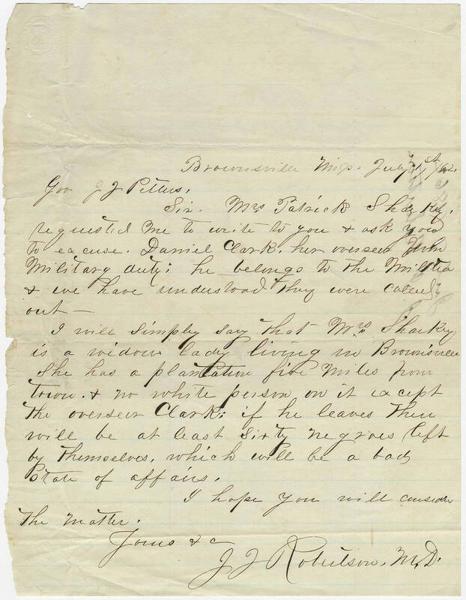 Brownsville Miss. July 1st /62.
Gov J J Pettus,
Sir. Mrs Patrick Sharkey,
requested me to write to you & ask you
to excuse, Daniel Clark, her overseer from
Military duty; he belongs to the Militia
& we have understood they were called
out—
I will simply say that Mrs Sharkey
is a widow lady living in Brownsville
She has a plantation five miles from
town. & no white person on it except
the overseer Clark; if he leaves there
will be at least Sixty negroes left
by themselves, which will be a bad
State of affairs.
I hope you will consider
the matter.
Yours & c
J J Robertson, M.D.